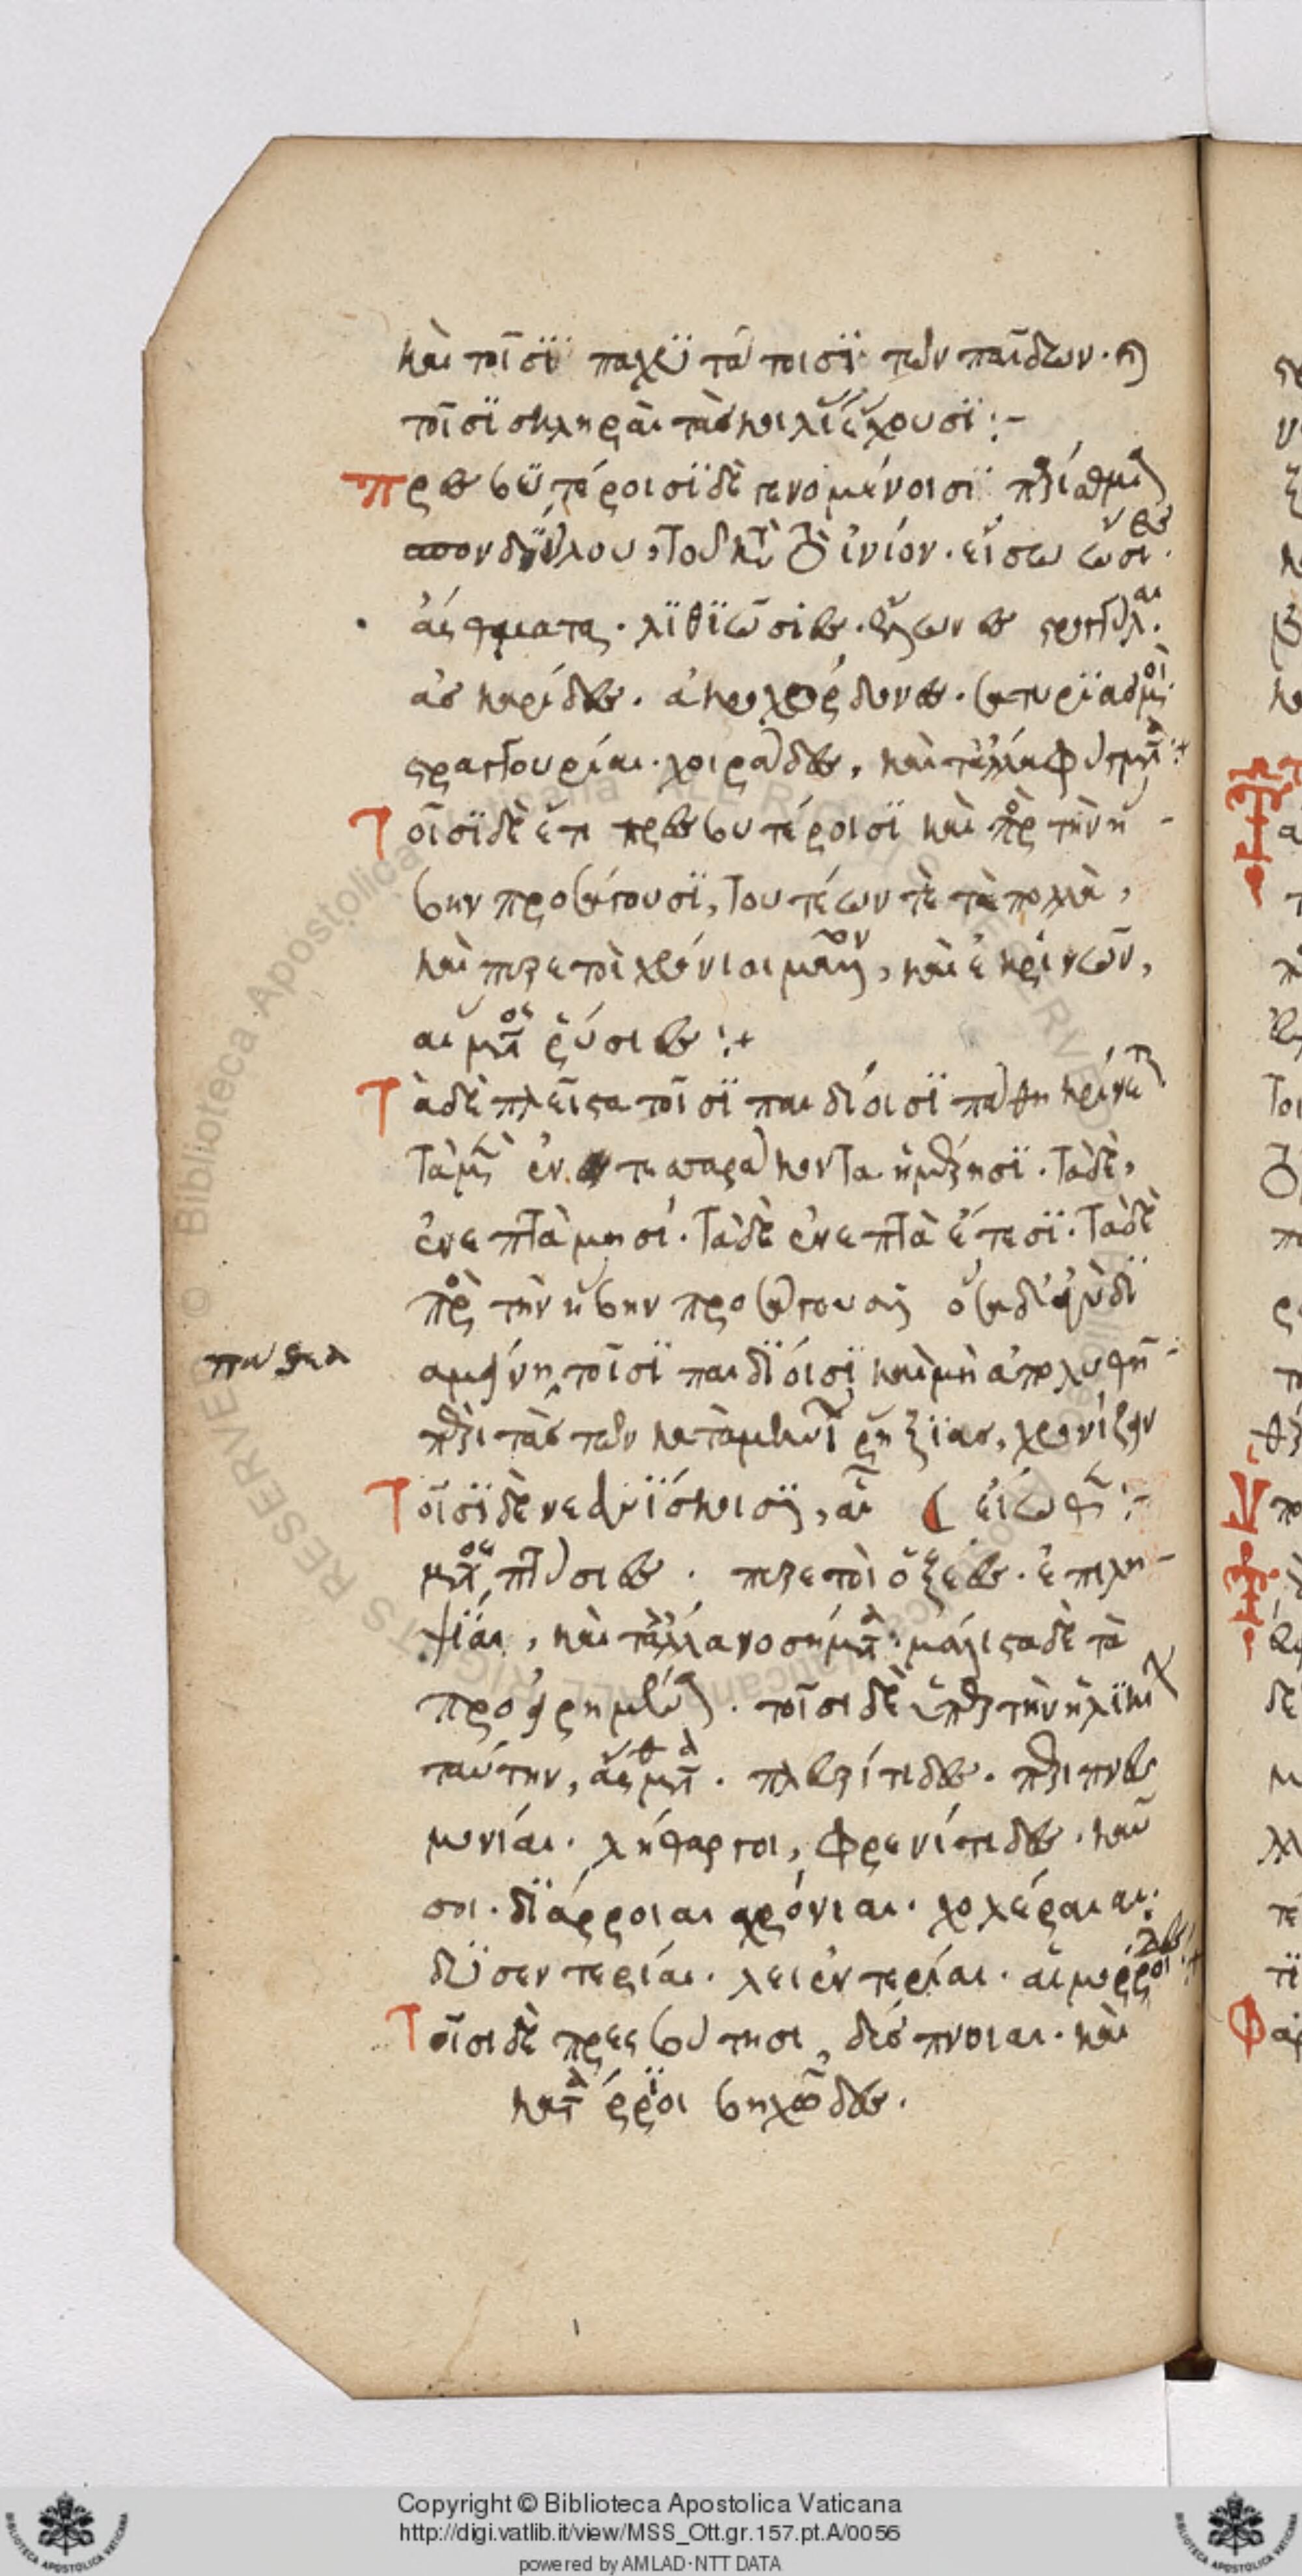 καὶ τοῖσϊ παχϋτάτοισϊ τῶν παίδων. καὶ
τοῖσϊ σκληρὰς τὰς κοιλίας ἔχουσϊ :-
Πρεσβϋτέροισϊ δὲ γενομένοισϊ παρίσθμια
σπονδύλου, τοῦ κατὰ τὸ ἰνίον. εἴσω ὤσιες.
ἄσθματα. λϊθϊώσιες. ἕλμινθες στρογγύλαι.
ἀσκαρίδες. ἀκροχορδόνες. σατυρϊασμοὶ.
στραγγουρίαι. χοιράδες, καὶ τἄλλα φύματα :+
Τοῖσϊ δὲ ἔτι πρεσβυτέροισϊ καὶ πρὸς τὴν ἥ-
βην προσάγουσϊ, τουτέων τὲ τὰ πολλὰ,
καὶ πυρετοὶ χρόνιοι μᾶλλον, καὶ ἐκ ῥινῶν,
αἵματος ῥύσιες :+
Τὰ δὲ πλεῖστα τοῖσϊ παιδίοισϊ πάθη κρίνεται
τὰ μὲν ἐν τεσσαράκοντα ἡμέρησϊ. τὰ δὲ,
ἐν ἑπτὰ μησί. τὰ δὲ ἐν ἑπτὰ ἔτεσϊ. τὰ δὲ
πρὸς τὴν ἥβην προσάγουσιν ὅσα δ' ἂν δϊ
πάθεα
αμείνη τοῖσϊ παιδϊόισϊ καὶ μὴ ἀπολυθῆ-
περὶ τὰς τῶν καταμηνίων ῥήξϊας, χρονίζειν
Τοῖσϊ δὲ νεανϊσκοισϊν, αἵ ( εἴωθεν :-
ματος πτύσιες. πυρετοὶ ὀξέες. ἐπιλη-
ψϊαι, καὶ τἄλλα νοσήματα. μάλιστα δὲ τὰ
προειρημένα. τοῖσι δὲ ὑπὲρ τὴν ἡλϊκίην
ταύτην, ἄσθματα. πλευρίτιδες. περιπνευ
μονίαι. λήθαργοι, φρενίτιδες. καῦ
σοι. δϊάρροιαι χρόνιαι. χολέραι αι.
δϋσεντερίαι. λειεντερίαι. αἱμορροΐδες :+
Τοῖσι δὲ πρεσβύτησι, δύσπνοιαι. καὶ
κατάρροϊ βηχώδεες.
Copyright © Biblioteca Apostolica Vaticana
http://digi.vatlib.it/view/MSS_Ott.gr.157.pt.A/0056
powered by AMLAD·NTT DATA